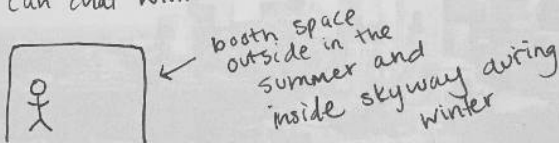 can chat
booth space
outside in the
summer and
inside skyway during
winter